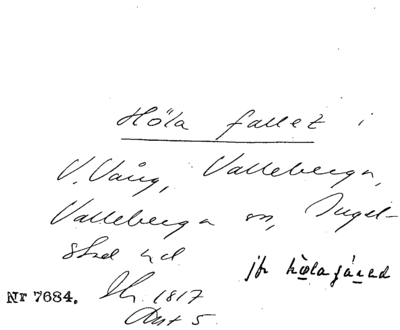 Höla fallet i
V. Vång, Valleberga,
Valleberga sn, Ingel-
stad hd
jfr hölagäred
Nr 7684. Sk. 1817
Akt 5